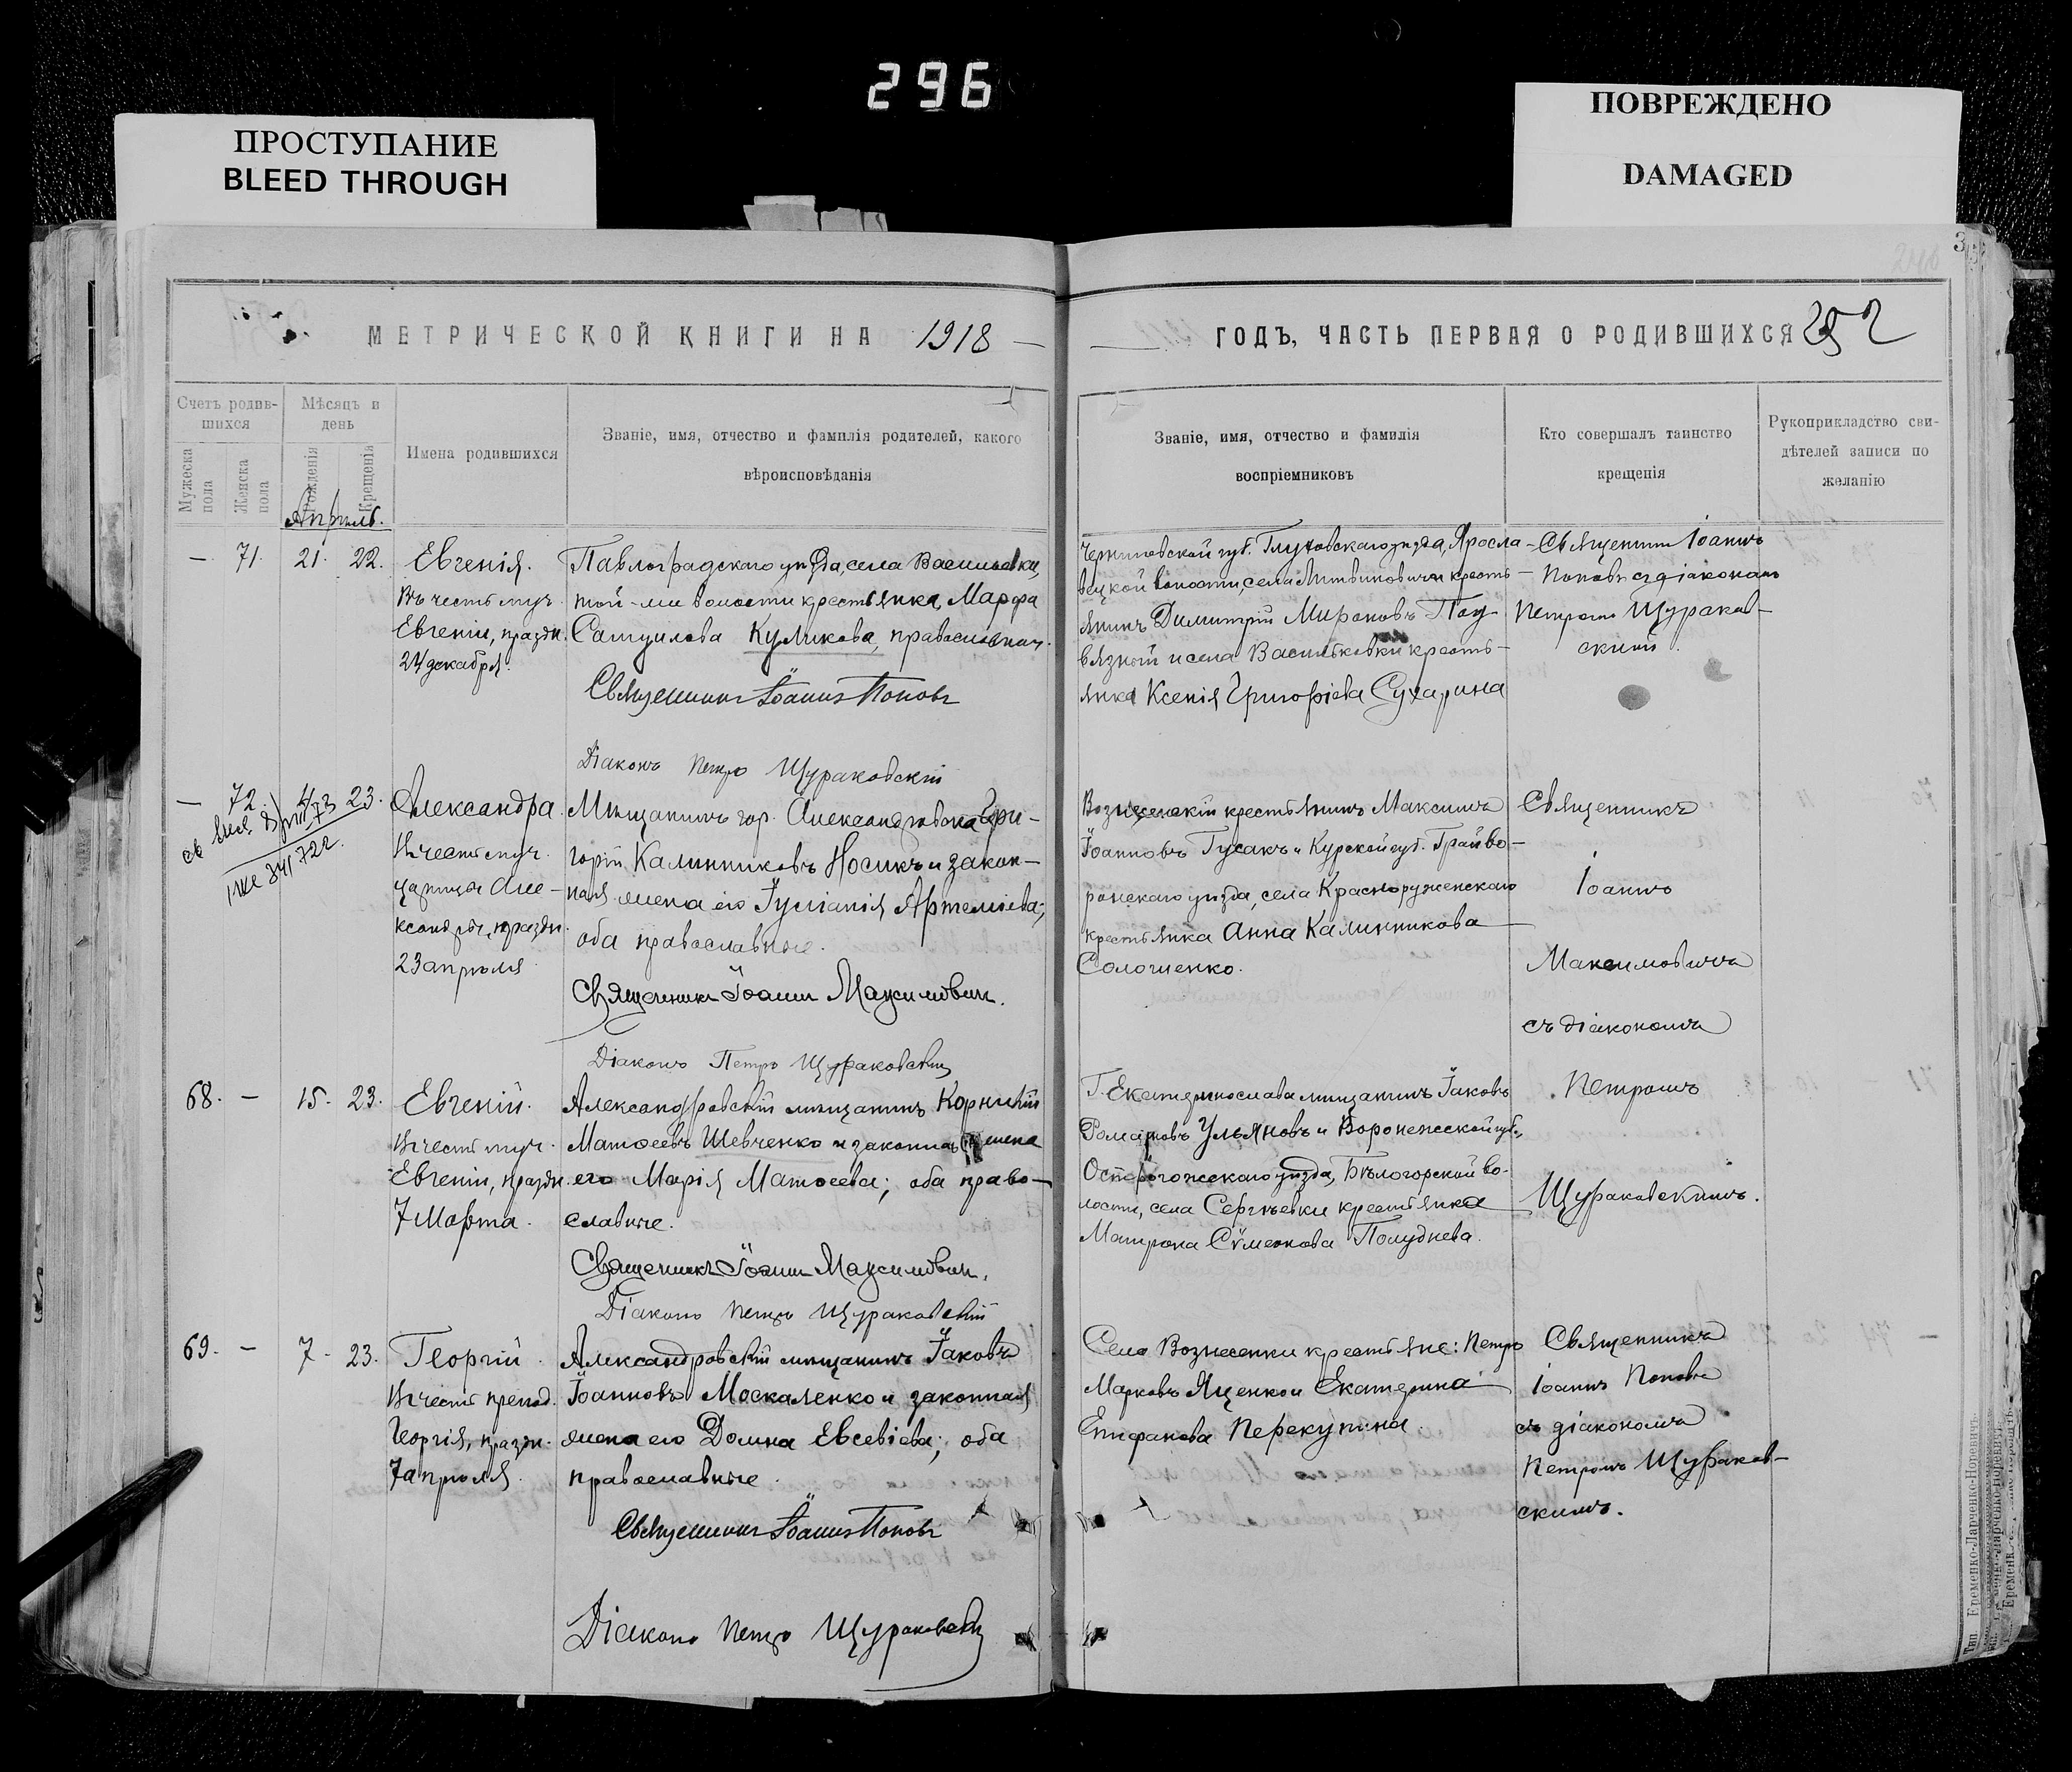 296
ПРОСТУПАНИЕ
BLEED THROUGH
ПОВРЕЖДЕНО
DAMAGED
МЕТРИЧЕСКОЙ КНИГИ НА 1918
Счетъ родив-
шихся
Мужеска
пола
Женска
пола
Мѣсяцъ и
день
Рожденія
Крещенія
Имена родившихся
Званіе, имя, отчество и фамилія родителей, какого
вѣроисповѣданія
Апрѣль.
— 71. 21. 22.
Евгенія.
Въ честь муч.
Евгеніи, праздн.
24 декабря.
Павлоградскаго уѣзда, села Васильевки,
той-же волости крестьянка, Марфа
Самуилова Куликова, православная.
Священникъ Іоаннъ Поповъ
Діаконъ Петръ Щураковскій
— 72. 4 23.
Александра.
Въ честь муч.
царицы Але-
ксандры, праздн.
23 апрѣля
Мѣщанинъ гор. Александровска Гри-
горій Калинниковъ Носикъ и закон-
ная жена его Іуліанія Артеміева;
оба православные.
Священникъ Іоаннъ Максимович.
Діаконъ Петръ Щураковскій
68. — 15. 23.
Евгеній.
Въ честь муч.
Евгенія, праздн.
7 Марта.
Александровскій мѣщанинъ Корнилій
Матѳеевъ Шевченко и законная жена
его Марія Матѳеева; оба право-
славные.
Священникъ Іоаннъ Максимович.
Діаконъ Петръ Щураковскій
69. — 7. 23.
Георгій.
Въ честь препод.
Георгія, праздн.
7 апрѣля.
Александровскій мѣщанинъ Іаковъ
Іоанновъ Москаленко и законная
жена его Домна Евсевіева; оба
православные.
Священникъ Іоаннъ Поповъ
Діаконъ Петръ Щураковскій
ГОДЪ, ЧАСТЬ ПЕРВАЯ О РОДИВШИХСЯ 252
Званіе, имя, отчество и фамилія
воспріемниковъ
Кто совершалъ таинство
крещенія
Рукоприкладство сви-
дѣтелей записи по
желанію
Черниговской губ. Глуховскаго уѣзда, Яросла-
вецкой волости, села Литвиновичи кресть-
янинъ Димитрій Мироновъ Под-
вязный и села Васильковки кресть-
янка Ксенія Григоріева Сухарина
Священникъ Іоаннъ
Поповъ съ діакономъ
Петромъ Щураков-
скимъ.
Вознесенскій крестьянинъ Максимъ
Іоанновъ Гусакъ и Курской губ. Грайво-
ронскаго уѣзда, села Краснояруженскаго
крестьянка Анна Калинникова
Солошенко.
Священникъ
Іоаннъ
Максимовичъ
съ діакономъ
Петромъ
Щураковскимъ.
Г. Екатеринослава мѣщанинъ Іаковъ
Романовъ Ульяновъ и Воронежской губ.,
Острогожскаго уѣзда, Бѣлогорской во-
лости, села Сергѣевки крестьянка
Матрона Сѵмеонова Полуднева.
Села Вознесенки крестьяне: Петръ
Марковъ Яценко и Екатерина
Епифанова Перекупина.
Священникъ
Іоаннъ Поповъ
съ діакономъ
Петромъ Щураков-
скимъ.
Тип. Еременко-Ларченко-Норовичъ.